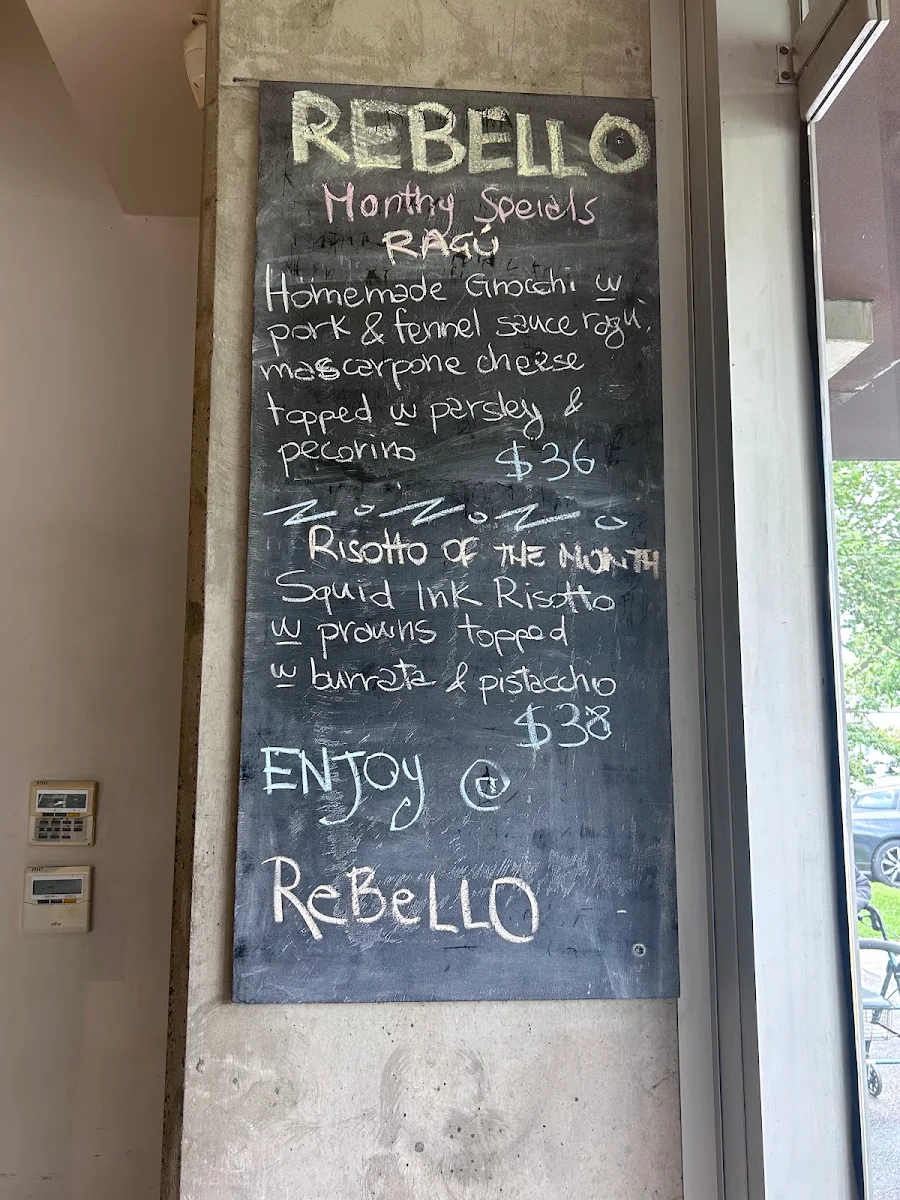 REBELLO
Monthy Speicls
RAGÚ
Homemade Gnocchi w
pork & fennel sauce ragú,
mascarpone cheese
topped w parsley &
pecorino $36
RISOTTO OF THE MONTH
Squid Ink Risotto
w prawns topped
w burrata & pistacchio
$38
ENJOY @
ReBeLLO